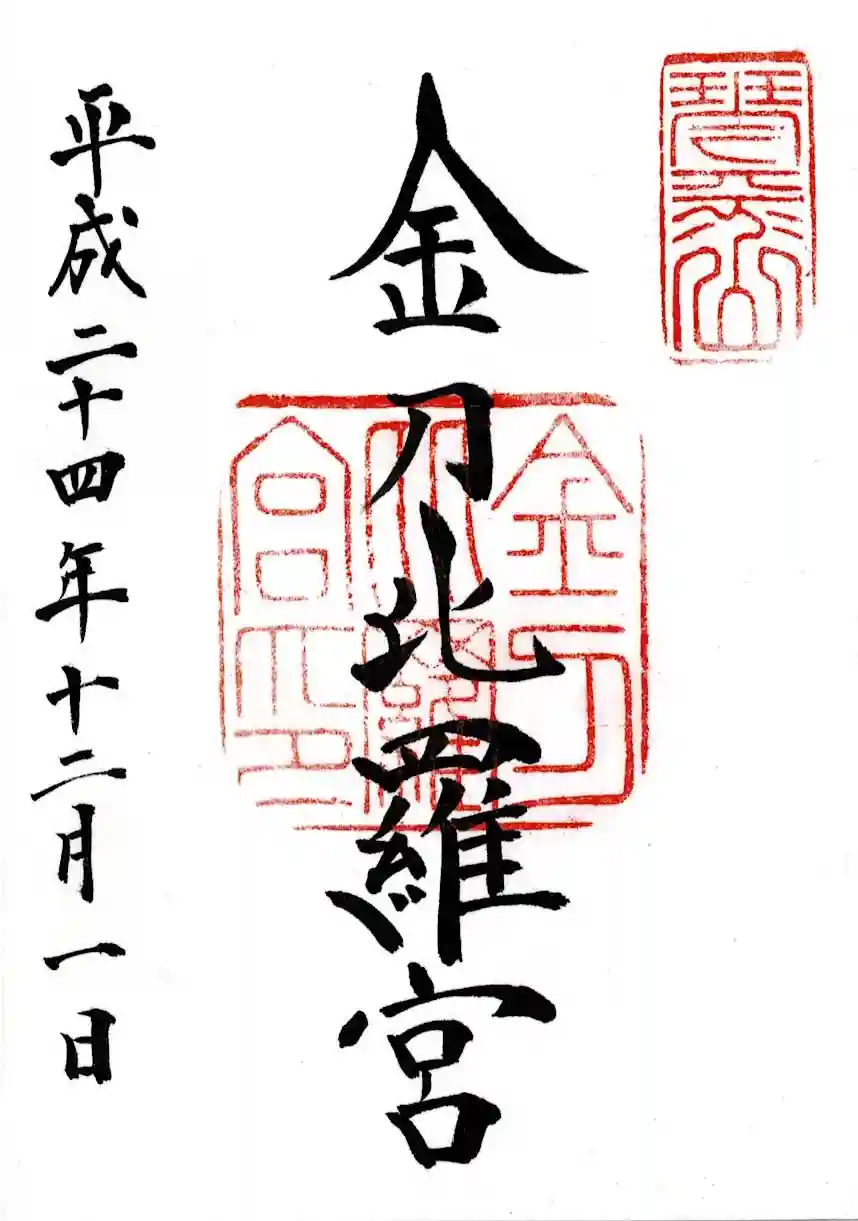 琴平山
金刀比羅宮
金刀
比羅
宮印
平成二十四年十二月一日